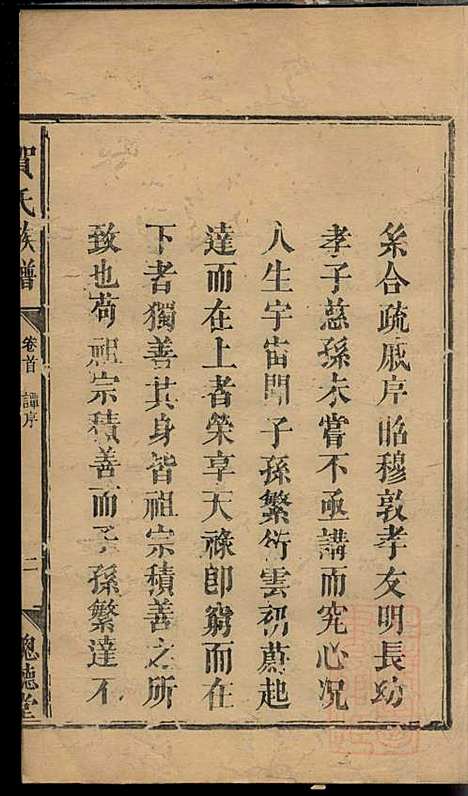 系合疏戚序昭穆敦孝友明長幼
孝子慈孫未嘗不亟講而究心况
人生宇宙間子孫繁衍雲礽蔚起
達而在上者榮享天祿即窮而在
下者獨善其身皆祖宗積善之所
致也苟祖宗積善而子孫繁達不
賀氏族譜
卷首 譚序
二
聰德堂